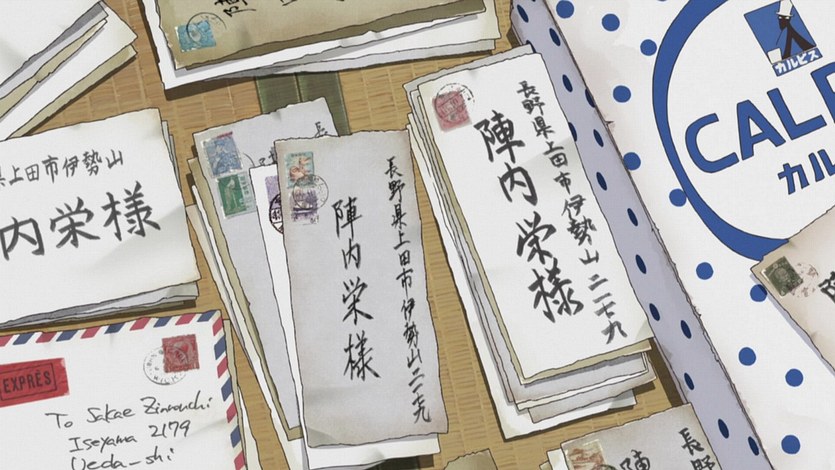 県上田市伊勢山
内栄様
EXPRÉS
To Sakae Zinnouchi
Iseyama 2179
Ueda-shi
長
長野県上田市伊勢山二一七九
陣内栄様
長野県上田市伊勢山二一七九
陣内栄様
カルピス
CALP
カル
長野
陣